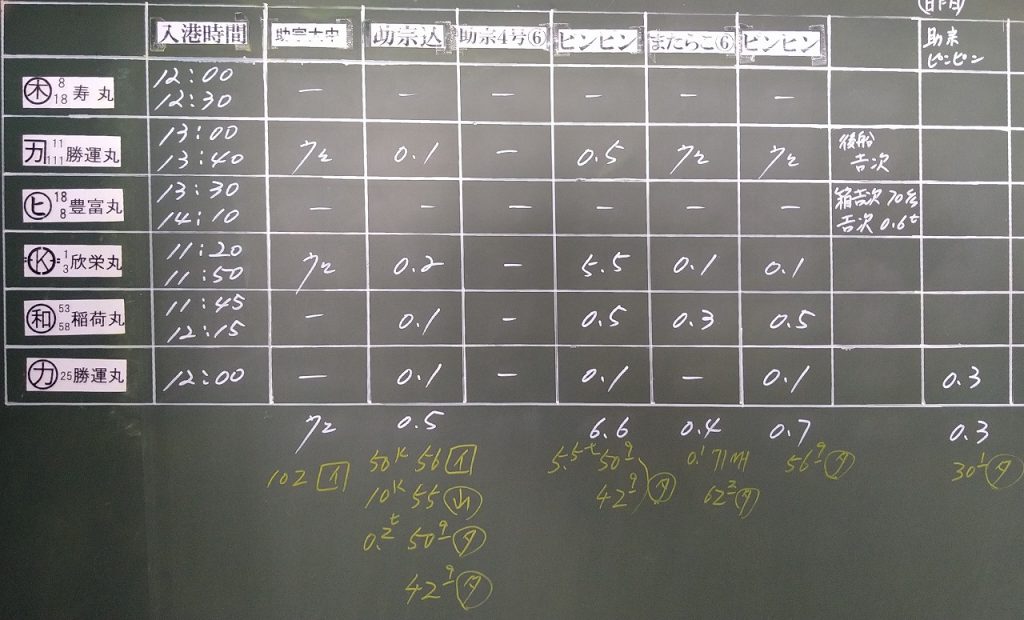 昨日
入港時間 助宗大中 助宗込 助宗4号⑥ ピンピン またらこ⑥ ピンピン 助宗
ピンピン
木 8 18 寿丸 12:00 — — — — — —
12:30
カ 11 111 勝運丸 13:00 ウエ 0.1 — 0.5 ウエ ウエ 後船
13:40 吉次
ヒ 18 8 豊富丸 13:30 — — — — — — 箱吉次 70
14:10 吉次 0.6t
K 1 3 欣栄丸 11:20 ウエ 0.2 — 5.5 0.1 0.1
11:50
和 53 58 稲荷丸 11:45 — 0.1 — 0.5 0.3 0.5
12:15
カ 25 勝運丸 12:00 — 0.1 — 0.1 — 0.1 0.3
ウエ 0.5 6.6 0.4 0.7 0.3
102 イ 50K 56 イ 5.5t 509 0.1 569 タ 301 タ
10K 55 山 429 タ 623 タ
0.2t 509 タ
429 タ